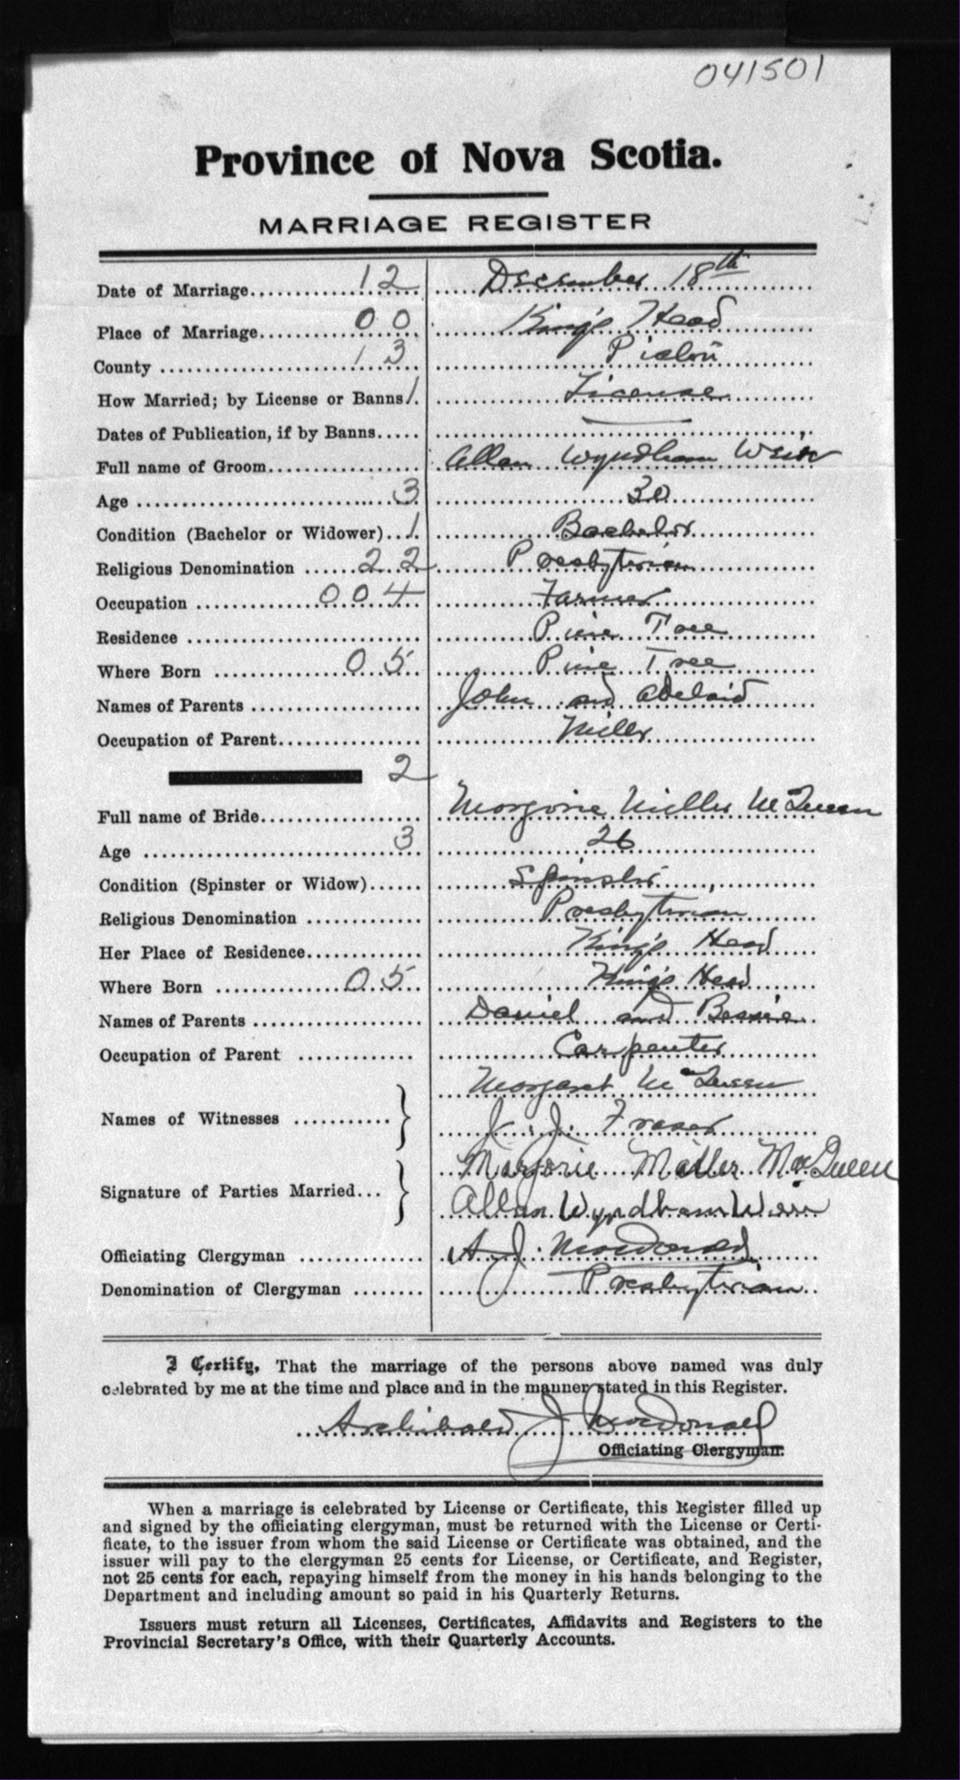 041501
Province of Nova Scotia.
MARRIAGE REGISTER
Date of Marriage 12 December 18th
Place of Marriage 00 King's Head
County 13 Pictou
How Married; by License or Banns 1 License
Dates of Publication, if by Banns
Full name of Groom Allan Wyndham Weir
Age 3 30
Condition (Bachelor or Widower) 1 Bachelor
Religious Denomination 22 Presbytrian
Occupation 004 Farmer
Residence Pine Tree
Where Born 05 Pine Tree
Names of Parents John and Adelaid
Occupation of Parent Miller
2
Full name of Bride Morgorie Miller McQueen
Age 3 26
Condition (Spinster or Widow) Spinster
Religious Denomination Presbytrian
Her Place of Residence King's Head
Where Born 05 King's Head
Names of Parents Daniel and Bessie
Occupation of Parent Carpenter
Names of Witnesses Morgaret McQueen
J. J. Fraser
Signature of Parties Married Marjorie Miller MacQueen
Allan Wyndham Weir
Officiating Clergyman A. J. MacDonald
Denomination of Clergyman Presbytrian
I Certify, That the marriage of the persons above named was duly
celebrated by me at the time and place and in the manner stated in this Register.
Archibald J MacDonald
Officiating Clergyman.
When a marriage is celebrated by License or Certificate, this Register filled up
and signed by the officiating clergyman, must be returned with the License or Certi-
ficate, to the issuer from whom the said License or Certificate was obtained, and the
issuer will pay to the clergyman 25 cents for License, or Certificate, and Register,
not 25 cents for each, repaying himself from the money in his hands belonging to the
Department and including amount so paid in his Quarterly Returns.
Issuers must return all Licenses, Certificates, Affidavits and Registers to the
Provincial Secretary's Office, with their Quarterly Accounts.